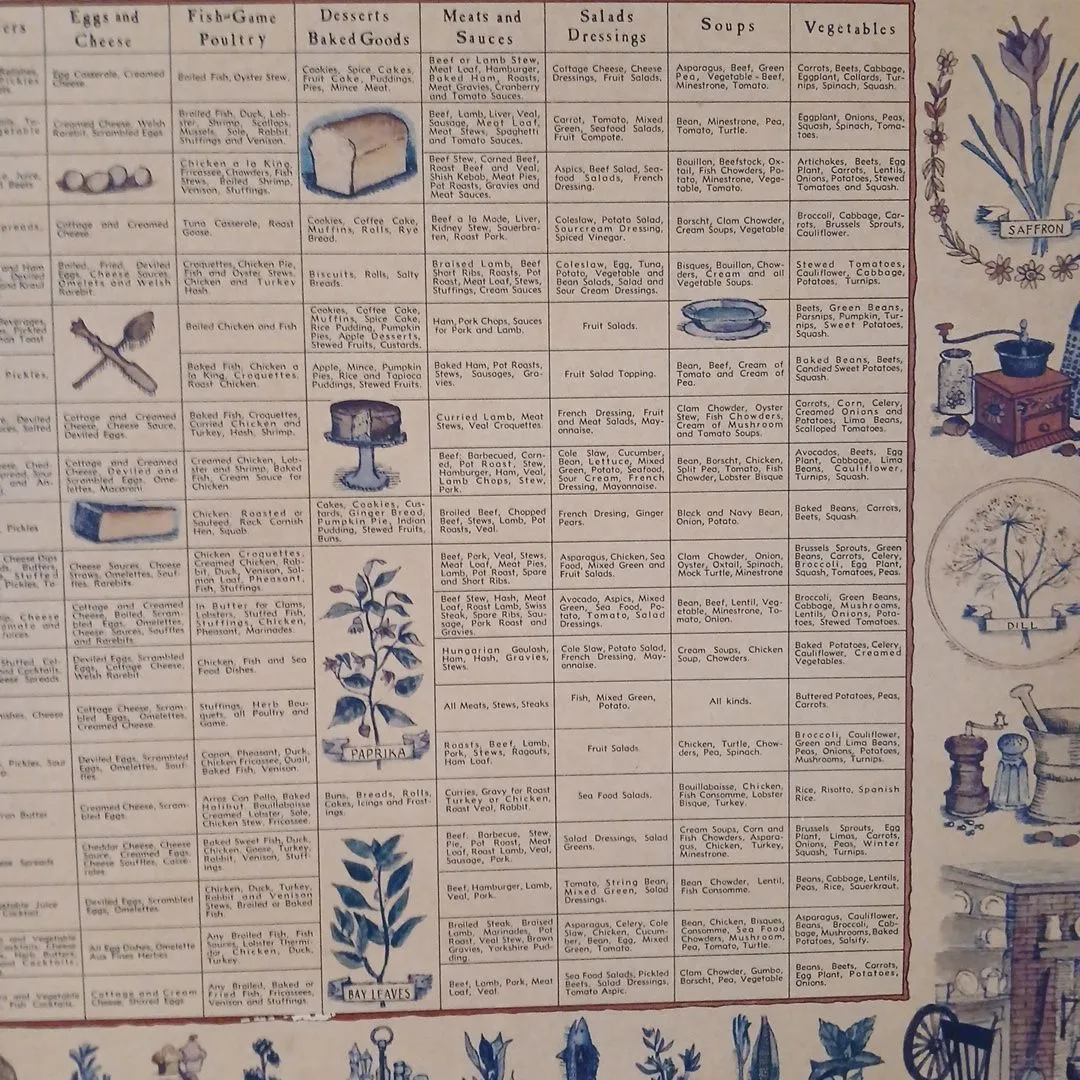 ers
Eggs and
Cheese
Fish-Game
Poultry
Desserts
Baked Goods
Meats and
Sauces
Salads
Dressings
Soups
Vegetables
Relishes,
Pickles
Egg Casserole, Creamed
Cheese
Boiled Fish, Oyster Stew.
Cookies, Spice Cakes,
Fruit Cake, Puddings,
Pies, Mince Meat.
Beef or Lamb Stew,
Meat Loaf, Hamburger,
Baked Ham, Roasts,
Meat Gravies, Cranberry
and Tomato Sauces.
Cottage Cheese, Cheese
Dressings, Fruit Salads.
Asparagus, Beef, Green
Pea, Vegetable-Beef,
Minestrone, Tomato.
Carrots, Beets, Cabbage,
Eggplant, Collards, Tur-
nips, Spinach, Squash.
Creamed Cheese, Welsh
Rarebit, Scrambled Eggs
Broiled Fish, Duck, Lob-
ster, Shrimp, Scallops,
Mussels, Sole, Rabbit,
Stuffings and Venison.
Beef, Lamb, Liver, Veal,
Sausage, Meat Loaf,
Meat Stews, Spaghetti
and Tomato Sauces.
Carrot, Tomato, Mixed
Green, Seafood Salads,
Fruit Compote.
Bean, Minestrone, Pea,
Tomato, Turtle.
Eggplant, Onions, Peas,
Squash, Spinach, Toma-
toes.
Chicken a la King,
Fricassee, Chowders, Fish
Stews, Boiled Shrimp,
Venison, Stuffings.
Beef Stew, Corned Beef,
Roast Beef and Veal,
Shish Kebab, Meat Pies,
Pot Roasts, Gravies and
Meat Sauces.
Aspics, Beef Salad, Sea-
food Salads, French
Dressing.
Bouillon, Beefstock, Ox-
tail, Fish Chowders, Po-
tato, Minestrone, Vege-
table, Tomato.
Artichokes, Beets, Egg
Plant, Carrots, Lentils,
Onions, Potatoes, Stewed
Tomatoes and Squash.
Spreads.
Cottage and Creamed
Cheese
Tuna Casserole, Roast
Goose.
Cookies, Coffee Cake,
Muffins, Rolls, Rye
Bread.
Beef a la Mode, Liver,
Kidney Stew, Sauerbra-
ten, Roast Pork.
Coleslaw, Potato Salad,
Sourcream Dressing,
Spiced Vinegar.
Borscht, Clam Chowder,
Cream Soups, Vegetable
Broccoli, Cabbage, Car-
rots, Brussels Sprouts,
Cauliflower.
and Ham
Deviled
and Kraut
Boiled, Fried, Deviled
Eggs, Cheese Sauces,
Omelets and Welsh
Rarebit.
Croquettes, Chicken Pie,
Fish and Oyster Stews,
Chicken and Turkey
Hash
Biscuits, Rolls, Salty
Breads.
Braised Lamb, Beef
Short Ribs, Roasts, Pot
Roast, Meat Loaf, Stews,
Stuffings, Cream Sauces
Coleslaw, Egg, Tuna,
Potato, Vegetable and
Bean Salads, Salad and
Sour Cream Dressings.
Bisques, Bouillon, Chow-
ders, Cream and all
Vegetable Soups.
Stewed Tomatoes,
Cauliflower, Cabbage,
Potatoes, Turnips.
Beverages,
Pickled
Toast
Boiled Chicken and Fish
Cookies, Coffee Cake,
Muffins, Spice Cake,
Rice Pudding, Pumpkin
Pies, Apple Desserts,
Stewed Fruits, Custards.
Ham, Pork Chops, Sauces
for Pork and Lamb.
Fruit Salads.
Beets, Green Beans,
Parsnips, Pumpkin, Tur-
nips, Sweet Potatoes,
Squash.
Pickles.
Baked Fish, Chicken a
la King, Croquettes,
Roast Chicken.
Apple, Mince, Pumpkin
Pies, Rice and Tapioca
Puddings, Stewed Fruits.
Baked Ham, Pot Roasts,
Stews, Sausages, Gra-
vies.
Fruit Salad Topping.
Bean, Beef, Cream of
Tomato and Cream of
Pea.
Baked Beans, Beets,
Candied Sweet Potatoes,
Squash.
Deviled
Salted
Cottage and Creamed
Cheese, Cheese Sauce,
Deviled Eggs.
Baked Fish, Croquettes,
Curried Chicken and
Turkey, Hash, Shrimp.
Curried Lamb, Meat
Stews, Veal Croquettes.
French Dressing, Fruit
and Meat Salads, May-
onnaise.
Clam Chowder, Oyster
Stew, Fish Chowders,
Cream of Mushroom
and Tomato Soups.
Carrots, Corn, Celery,
Creamed Onions and
Potatoes, Lima Beans,
Scalloped Tomatoes.
Cottage and Creamed
Cheese, Deviled and
Scrambled Eggs, Ome-
lettes, Macaroni
Creamed Chicken, Lob-
ster and Shrimp, Baked
Fish, Cream Sauce for
Chicken
Beef; Barbecued, Corn-
ed, Pot Roast, Stew,
Hamburger, Ham, Veal,
Lamb Chops, Stew,
Pork.
Cole Slaw, Cucumber,
Bean, Lettuce, Mixed
Green, Potato, Seafood,
Sour Cream, French
Dressing, Mayonnaise.
Bean, Borscht, Chicken,
Split Pea, Tomato, Fish
Chowder, Lobster Bisque
Avocados, Beets, Egg
Plant, Cabbage, Lima
Beans, Cauliflower,
Turnips, Squash.
Pickles
Chicken, Roasted or
Sauteed, Rock Cornish
Hen, Squab.
Cakes, Cookies, Cus-
tards, Ginger Bread,
Pumpkin Pie, Indian
Pudding, Stewed Fruits,
Buns.
Broiled Beef, Chopped
Beef, Stews, Lamb, Pot
Roasts, Veal.
French Dresing, Ginger
Pears.
Black and Navy Bean,
Onion, Potato.
Baked Beans, Carrots,
Beets, Squash.
Cheese Dips
Butters,
Stuffed
Pickles, To-
Cheese Sauces, Cheese
Straws, Omelettes, Souf-
fles, Rarebits.
Chicken Croquettes,
Creamed Chicken, Rab-
bit, Duck, Venison, Sal-
mon Loaf, Pheasant,
Fish, Stuffings.
Beef, Pork, Veal, Stews,
Meat Loaf, Meat Pies,
Lamb, Pot Roast, Spare
and Short Ribs.
Asparagus, Chicken, Sea
Food, Mixed Green and
Fruit Salads.
Clam Chowder, Onion,
Oyster, Oxtail, Spinach,
Mock Turtle, Minestrone
Brussels Sprouts, Green
Beans, Carrots, Celery,
Broccoli, Egg Plant,
Squash, Tomatoes, Peas.
Cheese
Juices.
Cottage and Creamed
Cheese, Boiled, Scram-
bled Eggs, Omelettes,
Cheese Sauces, Souffles
and Rarebits
In Butter for Clams,
Lobsters, Stuffed Fish,
Stuffings, Chicken,
Pheasant, Marinades.
Beef Stew, Hash, Meat
Loaf, Roast Lamb, Swiss
Steak, Spare Ribs, Sau-
sage, Pork Roast and
Gravies.
Avocado, Aspics, Mixed
Green, Sea Food, Po-
tato, Tomato, Salad
Dressings.
Bean, Beef, Lentil, Veg-
etable, Minestrone, To-
mato, Onion.
Broccoli, Green Beans,
Cabbage, Mushrooms,
Lentils, Onions, Pota-
toes, Stewed Tomatoes.
Stuffed Cel-
Cocktails,
Cheese Spreads.
Deviled Eggs, Scrambled
Eggs, Cottage Cheese,
Welsh Rarebit.
Chicken, Fish and Sea
Food Dishes.
Hungarian Goulash,
Ham, Hash, Gravies,
Stews.
Cole Slaw, Potato Salad,
French Dressing, May-
onnaise.
Cream Soups, Chicken
Soup, Chowders.
Baked Potatoes, Celery,
Cauliflower, Creamed
Vegetables.
Cheese
Cottage Cheese, Scram-
bled Eggs, Omelettes,
Creamed Cheese
Stuffings, Herb Bou-
quets, all Poultry and
Game.
All Meats, Stews, Steaks
Fish, Mixed Green,
Potato.
All kinds.
Buttered Potatoes, Peas,
Carrots.
PAPRIKA
Pickles, Sour
Deviled Eggs, Scrambled
Eggs, Omelettes, Souf-
fles.
Capon, Pheasant, Duck,
Chicken Fricassee, Quail,
Baked Fish, Venison.
Roasts, Beef, Lamb,
Pork, Stews, Ragouts,
Ham Loaf.
Fruit Salads
Chicken, Turtle, Chow-
ders, Pea, Spinach.
Broccoli, Cauliflower,
Green and Lima Beans,
Peas, Onions, Potatoes,
Mushrooms, Turnips.
Butter
Creamed Cheese, Scram-
bled Eggs.
Arroz Con Pollo, Baked
Halibut, Bouillabaisse
Creamed Lobster, Sole,
Chicken Stew, Fricassee.
Buns, Breads, Rolls,
Cakes, Icings and Frost-
ings.
Curries, Gravy for Roast
Turkey or Chicken,
Roast Veal, Rabbit.
Sea Food Salads.
Bouillabaisse, Chicken,
Fish Consomme, Lobster
Bisque, Turkey.
Rice, Risotto, Spanish
Rice.
Spreads
Cheddar Cheese, Cheese
Sauce, Creamed Eggs,
Cheese Souffles, Casse-
roles.
Baked Sweet Fish, Duck,
Chicken, Goose, Turkey,
Rabbit, Venison, Stuff-
ings.
Beef; Barbecue, Stew,
Pie, Pot Roast, Meat
Loaf, Roast Lamb, Veal,
Sausage, Pork.
Salad Dressings, Salad
Greens.
Cream Soups, Corn and
Fish Chowders, Aspara-
gus, Chicken, Turkey,
Minestrone.
Brussels Sprouts, Egg
Plant, Limas, Carrots,
Onions, Peas, Winter
Squash, Turnips.
Juice
Cocktail.
Deviled Eggs, Scrambled
Eggs, Omelettes.
Chicken, Duck, Turkey,
Rabbit and Venison
Stews, Broiled or Baked
Fish.
Beef, Hamburger, Lamb,
Veal, Pork.
Tomato, String Bean,
Mixed Green, Salad
Dressings.
Bean Chowder, Lentil,
Fish Consomme.
Beans, Cabbage, Lentils,
Peas, Rice, Sauerkraut.
and Vegetable
Cocktails, Cheese
Herb Butters,
Cocktails.
All Egg Dishes, Omelette
Aux Fines Herbes
Any Broiled Fish, Fish
Sauces, Lobster Thermi-
dor, Chicken, Duck,
Turkey.
Broiled Steak, Braised
Lamb, Marinades, Pot
Roast, Veal Stew, Brown
Gravies, Yorkshire Pud-
ding.
Asparagus, Celery, Cole
Slaw, Chicken, Cucum-
ber, Bean, Egg, Mixed
Green, Tomato.
Bean, Chicken, Bisques,
Consomme, Sea Food
Chowders, Mushroom,
Pea, Tomato, Turtle.
Asparagus, Cauliflower,
Beans, Broccoli, Cab-
bage, Mushrooms, Baked
Potatoes, Salsify.
and Vegetable
Fish Cocktails.
Cottage and Cream
Cheese, Shirred Eggs
Any Broiled, Baked or
Fried Fish, Fricassees,
Venison and Stuffings.
BAY LEAVES
Beef, Lamb, Pork, Meat
Loaf, Veal.
Sea Food Salads, Pickled
Beets, Salad Dressings,
Tomato Aspic.
Clam Chowder, Gumbo,
Borscht, Pea, Vegetable
Beans, Beets, Carrots,
Egg Plant, Potatoes,
Onions.
SAFFRON
DILL